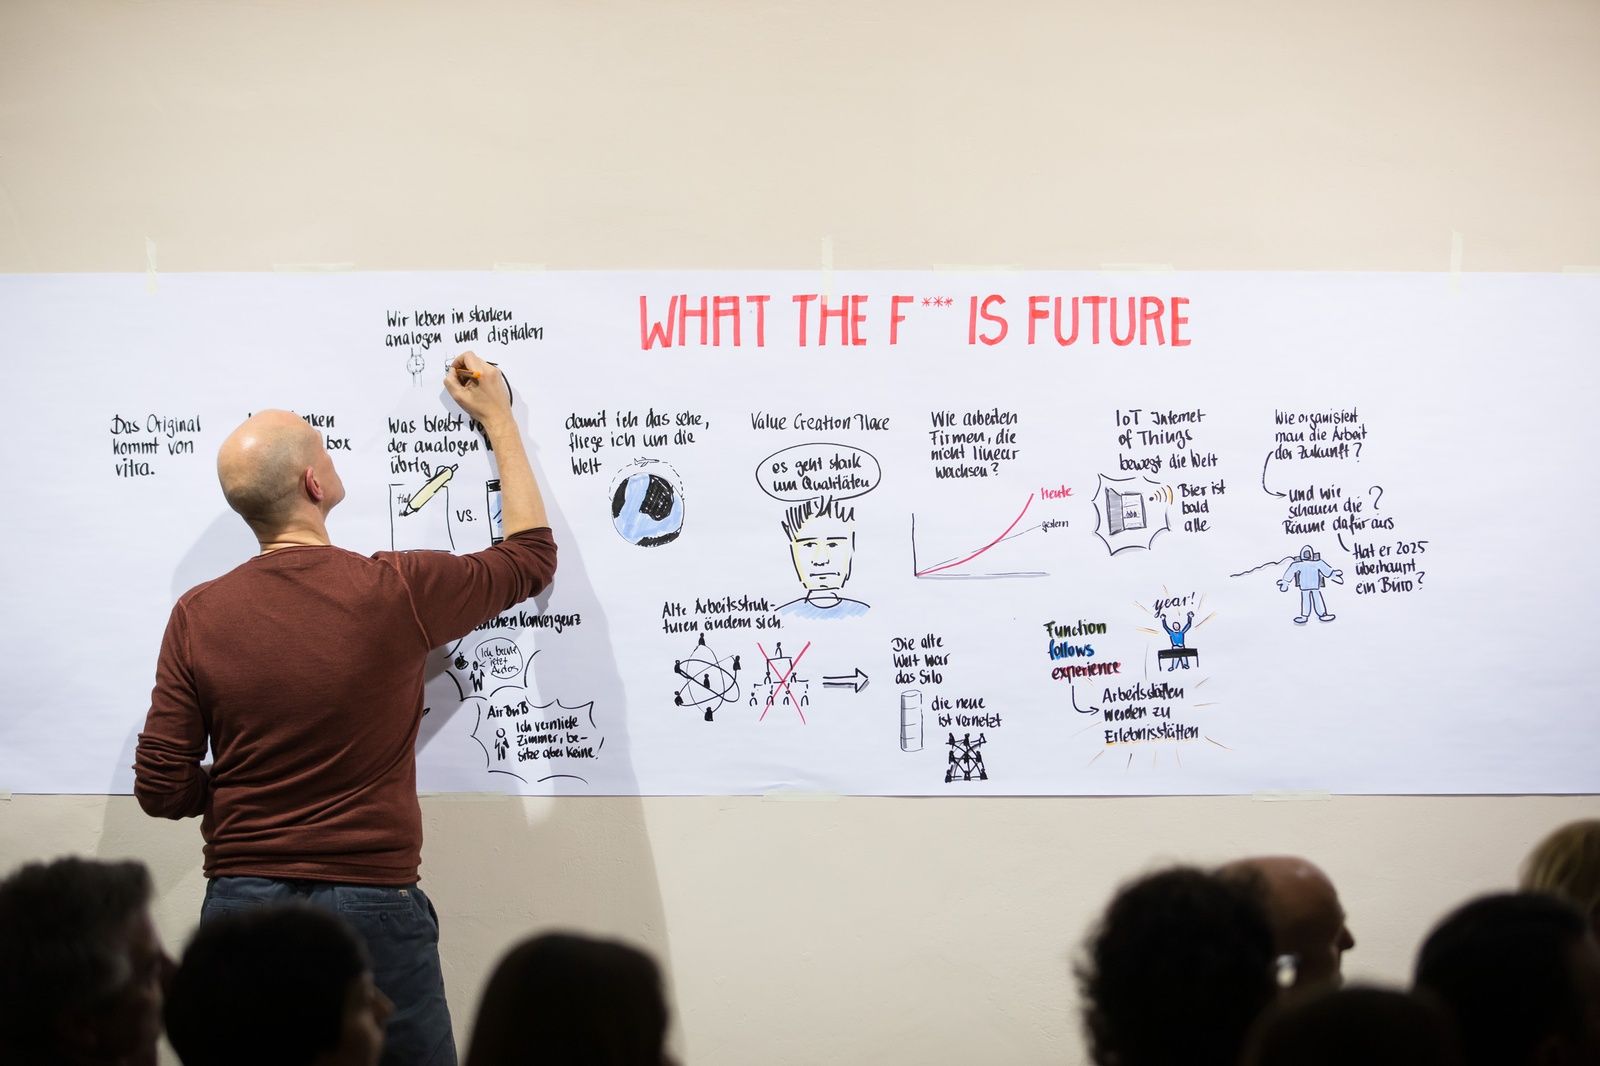 WHAT THE F*** IS FUTURE
Wir leben in starken
analogen und digitalen
Das Original
kommt von
vitra.
box
Was bleibt
der analogen
übrig
vs.
damit ich das sehe,
fliege ich um die
Welt
Value Creation Place
es geht stark
um Qualitäten
Wie arbeiten
Firmen, die
nicht linear
wachsen?
Heute
gestern
IoT Internet
of Things
bewegt die Welt
Bier ist
bald
alle
Wie organisiert
man die Arbeit
der Zukunft?
und wie
schauen die ?
Räume dafür aus
Hat er 2025
überhaupt
ein Büro?
Konvergenz
Ich baue
jetzt
Autos
AirBnB
Ich vermiete
Zimmer, be-
sitze aber keine!
Alte Arbeitsstruk-
turen ändern sich.
Die alte
Welt war
das Silo
die neue
ist vernetzt
Function
follows
experience
year!
Arbeitsstätten
werden zu
Erlebnisstätten